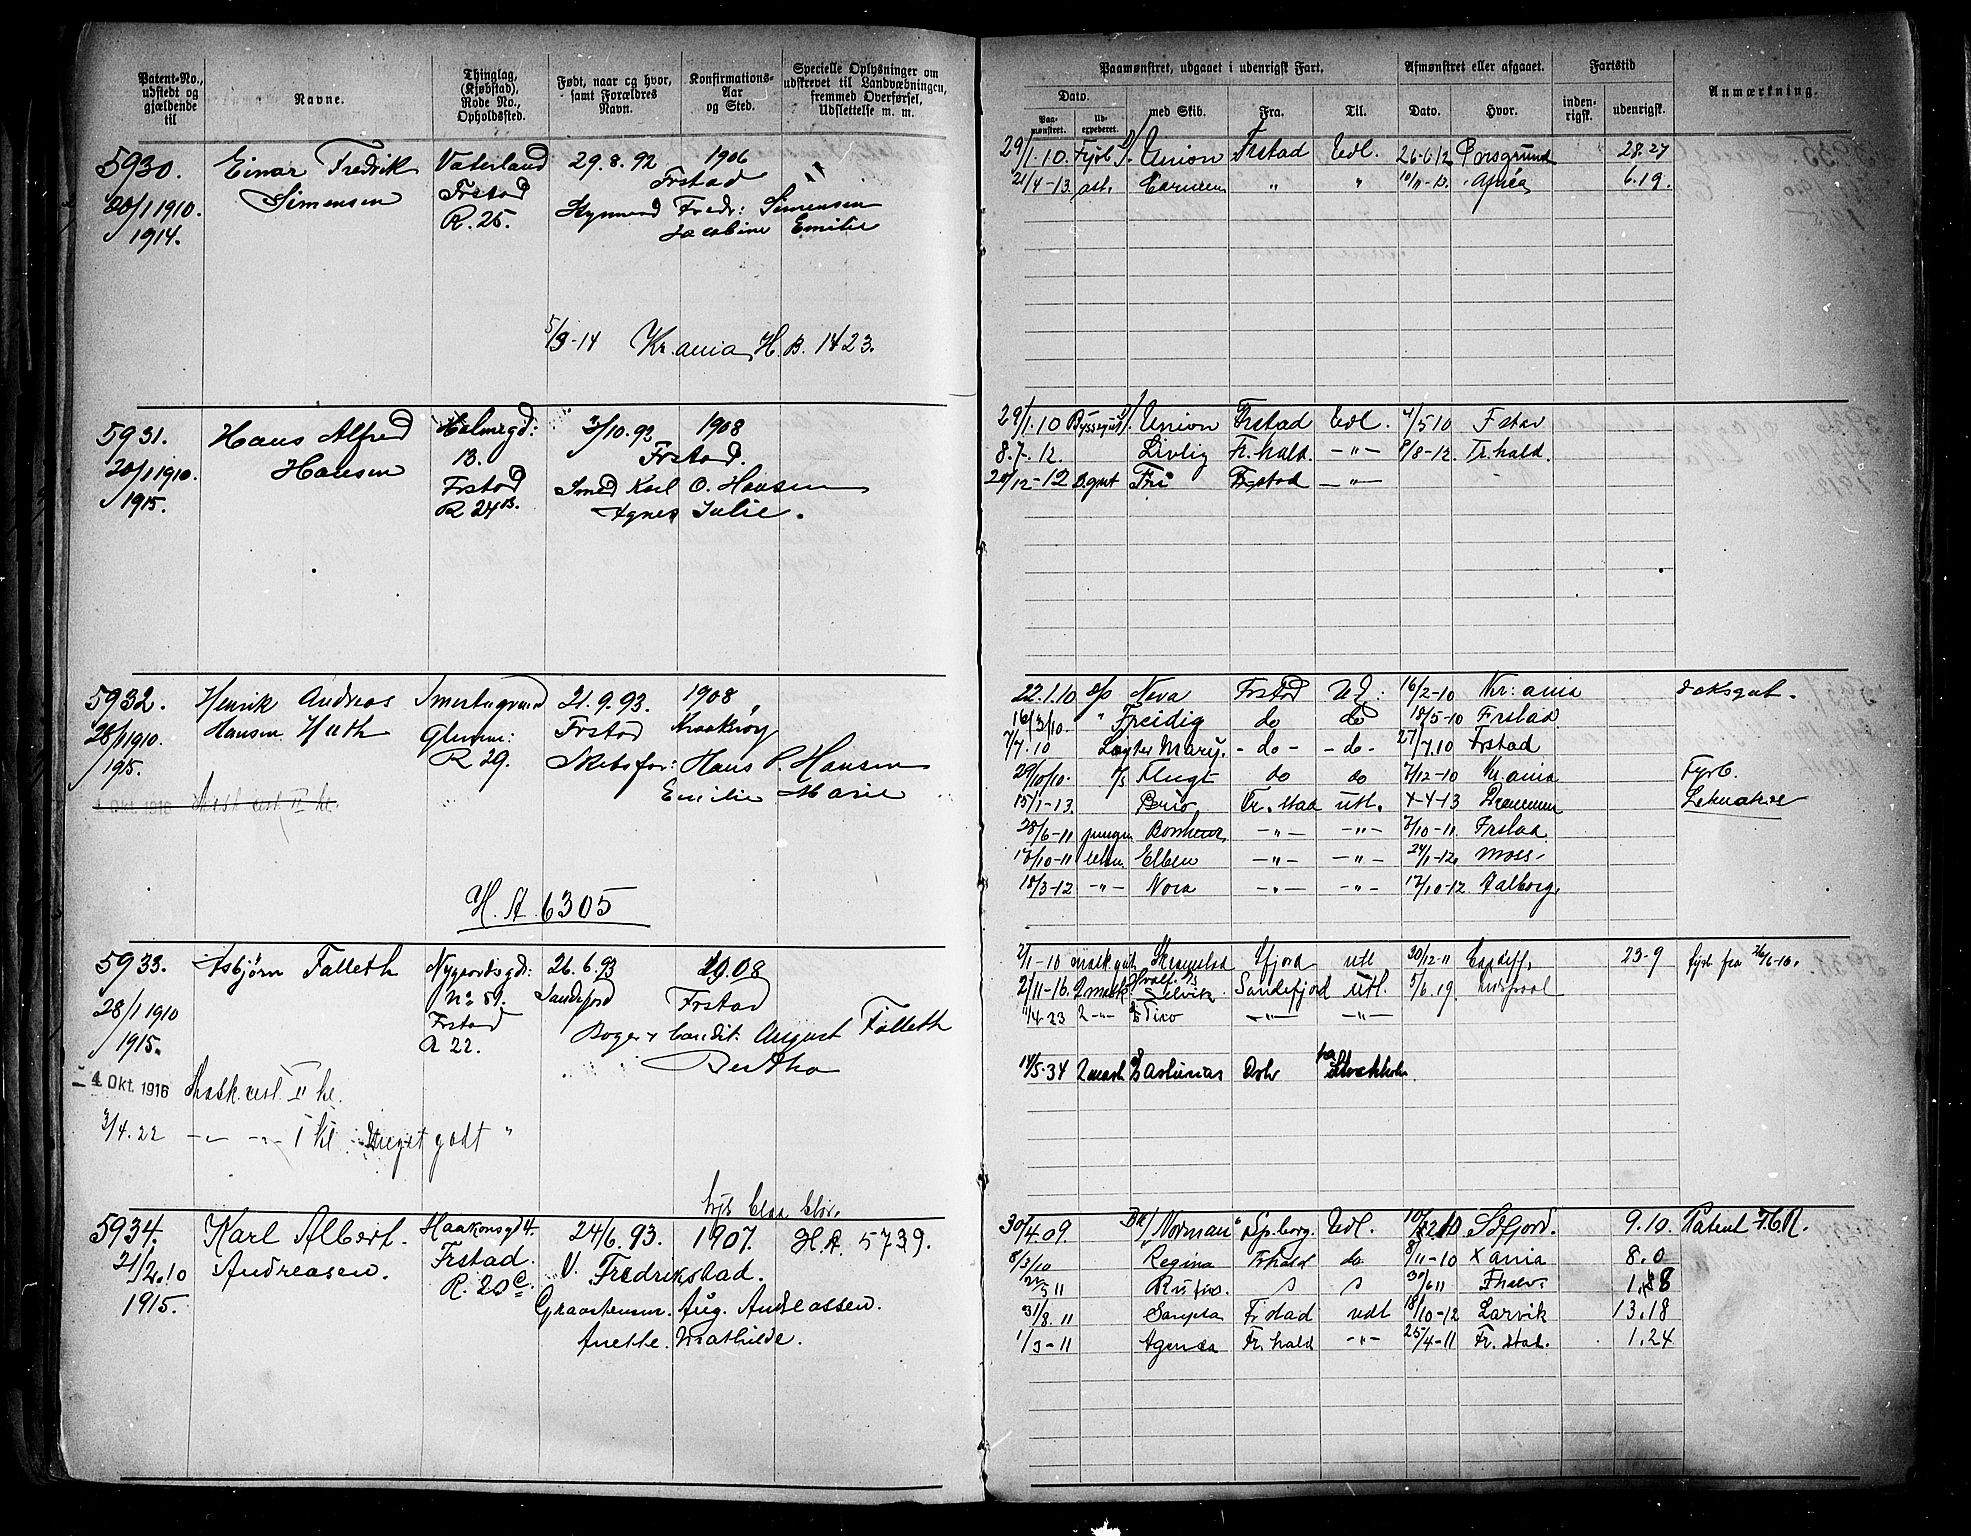 Patent-No., udstedt og gjældende til
Navne.
Thinglag, (Kjøbstad), Rode No., Opholdssted.
Født, naar og hvor, samt Forældres Navn.
Konfirmations-Aar og Sted.
Specielle Oplysninger om udskrevet til Landvæbningen, fremmed Overførsel, Udslettelse m. m.
5930. Einar Fredrik Vaterland 29.8.92 1906
Simensen Frstad Frstad
20/1 1910. R. 25. Fredr: Simensen
1914. Jacobine Emilie
5/3-14 Kr.ania H.B. 1423.
5931. Hans Alfred Holmegd: 3/10.92 1908
Hansen 13. Frstad.
20/1 1910. Frstad Smed Karl O. Hansen
1915. R 24B. Agnes Julie.
5932. Henrik Andreas 21.9.93. 1908
Hansen Huth Glemm: Frstad Kraakrøy
28/1 1910. R 29. Hans P. Hansen
1915. Emilie Marie
4 Okt 1916 Mask cert II kl.
H. A. 6305
5933. Asbjørn Falleth Nygaardsgd: 26.6.93 1908
No 59. Sandefjord Frstad
28/1 1910 Frstad August Falleth
1915. R 22. Bertha
4 Okt. 1916 Mask. cert. II kl.
3/4.22 I kl. Meget godt "
5934. Karl Albert Haakonsgd 4. 24/6.93. 1907. H.A. 5739.
Andreasen. Frstad. V. Fredrikstad.
21/2.10 R. 20c.
1915. Aug. Andreassen.
Anette Mathilde.
Paamønstret, udgaaet i udenrigsk Fart.
Afmønstret eller afgaaet.
Fartstid
Anmærkning.
Dato.
Paa-mønstret.
Ud-expederet.
med Skib.
Fra.
Til.
Dato.
Hvor.
inden-rigsk.
udenrigsk.
29/1.10. Fyrb. Union Frstad Udl. 26-6/12 Porsgrund 28.27
21/4-13. " " 10/11-13. 6.19.
29/1.10 Union Frstad Udl. 4/5 10 Fstad
8.7.12. Livlig Fr.hald. -"- 8/8-12. Fr.hald.
20/12-12 Fri Frstad -"-
22.1.10 Neva Frstad Ud: 16/2-10 Kr:ania dæksgut.
16/3/10. " Freidig do do 18/5-10 Frstad
7/7.10 Mary. -do- -do- 27/7.10 Frstad
29/10/10. Flugt do do 7/12-10 Kr.ania Fyrb.
15/1-13. Brio Fr.stad utl. 4-4-13 Drammen Letmatros
28/6-11 jungm Bonheur -"- -"- 7/10-11. Frstad
17/10-11 letm Elben -"- -"- 24/1-12. Moss
18/3-12 -"- Nora -"- -"- 17/10-12. Aalborg.
2/1-10 utl 30/12-11 Cardiff. 23-9 fyrb fra 26/6-10.
2/11-16. 2 mask Selvik Sandefjord utl. 5/6.19.
11/4-23 2 -"- Tiro -"- -"-
14/5-34 2 mask Asturias Oslo Stockholm
30/4.09. "Norman" Spborg. Udl. Sdfjord. 9.10. Patent F.C.R.
8/3/10 Regina Frhald do 8/11-10 Xania 8.0
Rufus. 30/6 11
31/8.11 Fr stad udl 18/10-12 Larvik 13.18
1/3-11 Fr. hald -"- 25/4-11 Fr. stad. 1.24